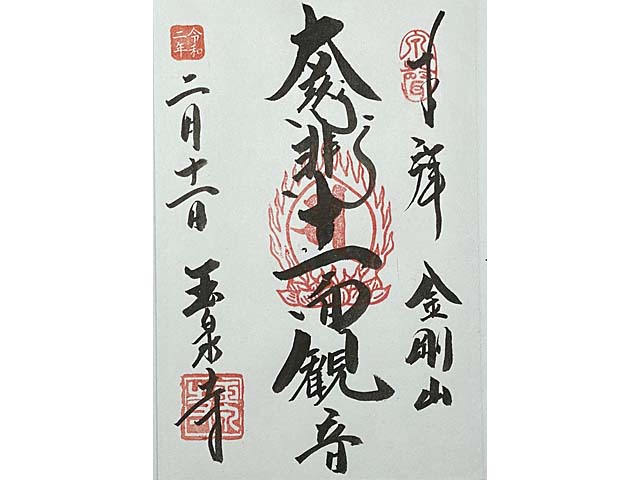 奉拝 金剛山
大慈悲十一面観音
令和二年
二月十一日 玉泉寺